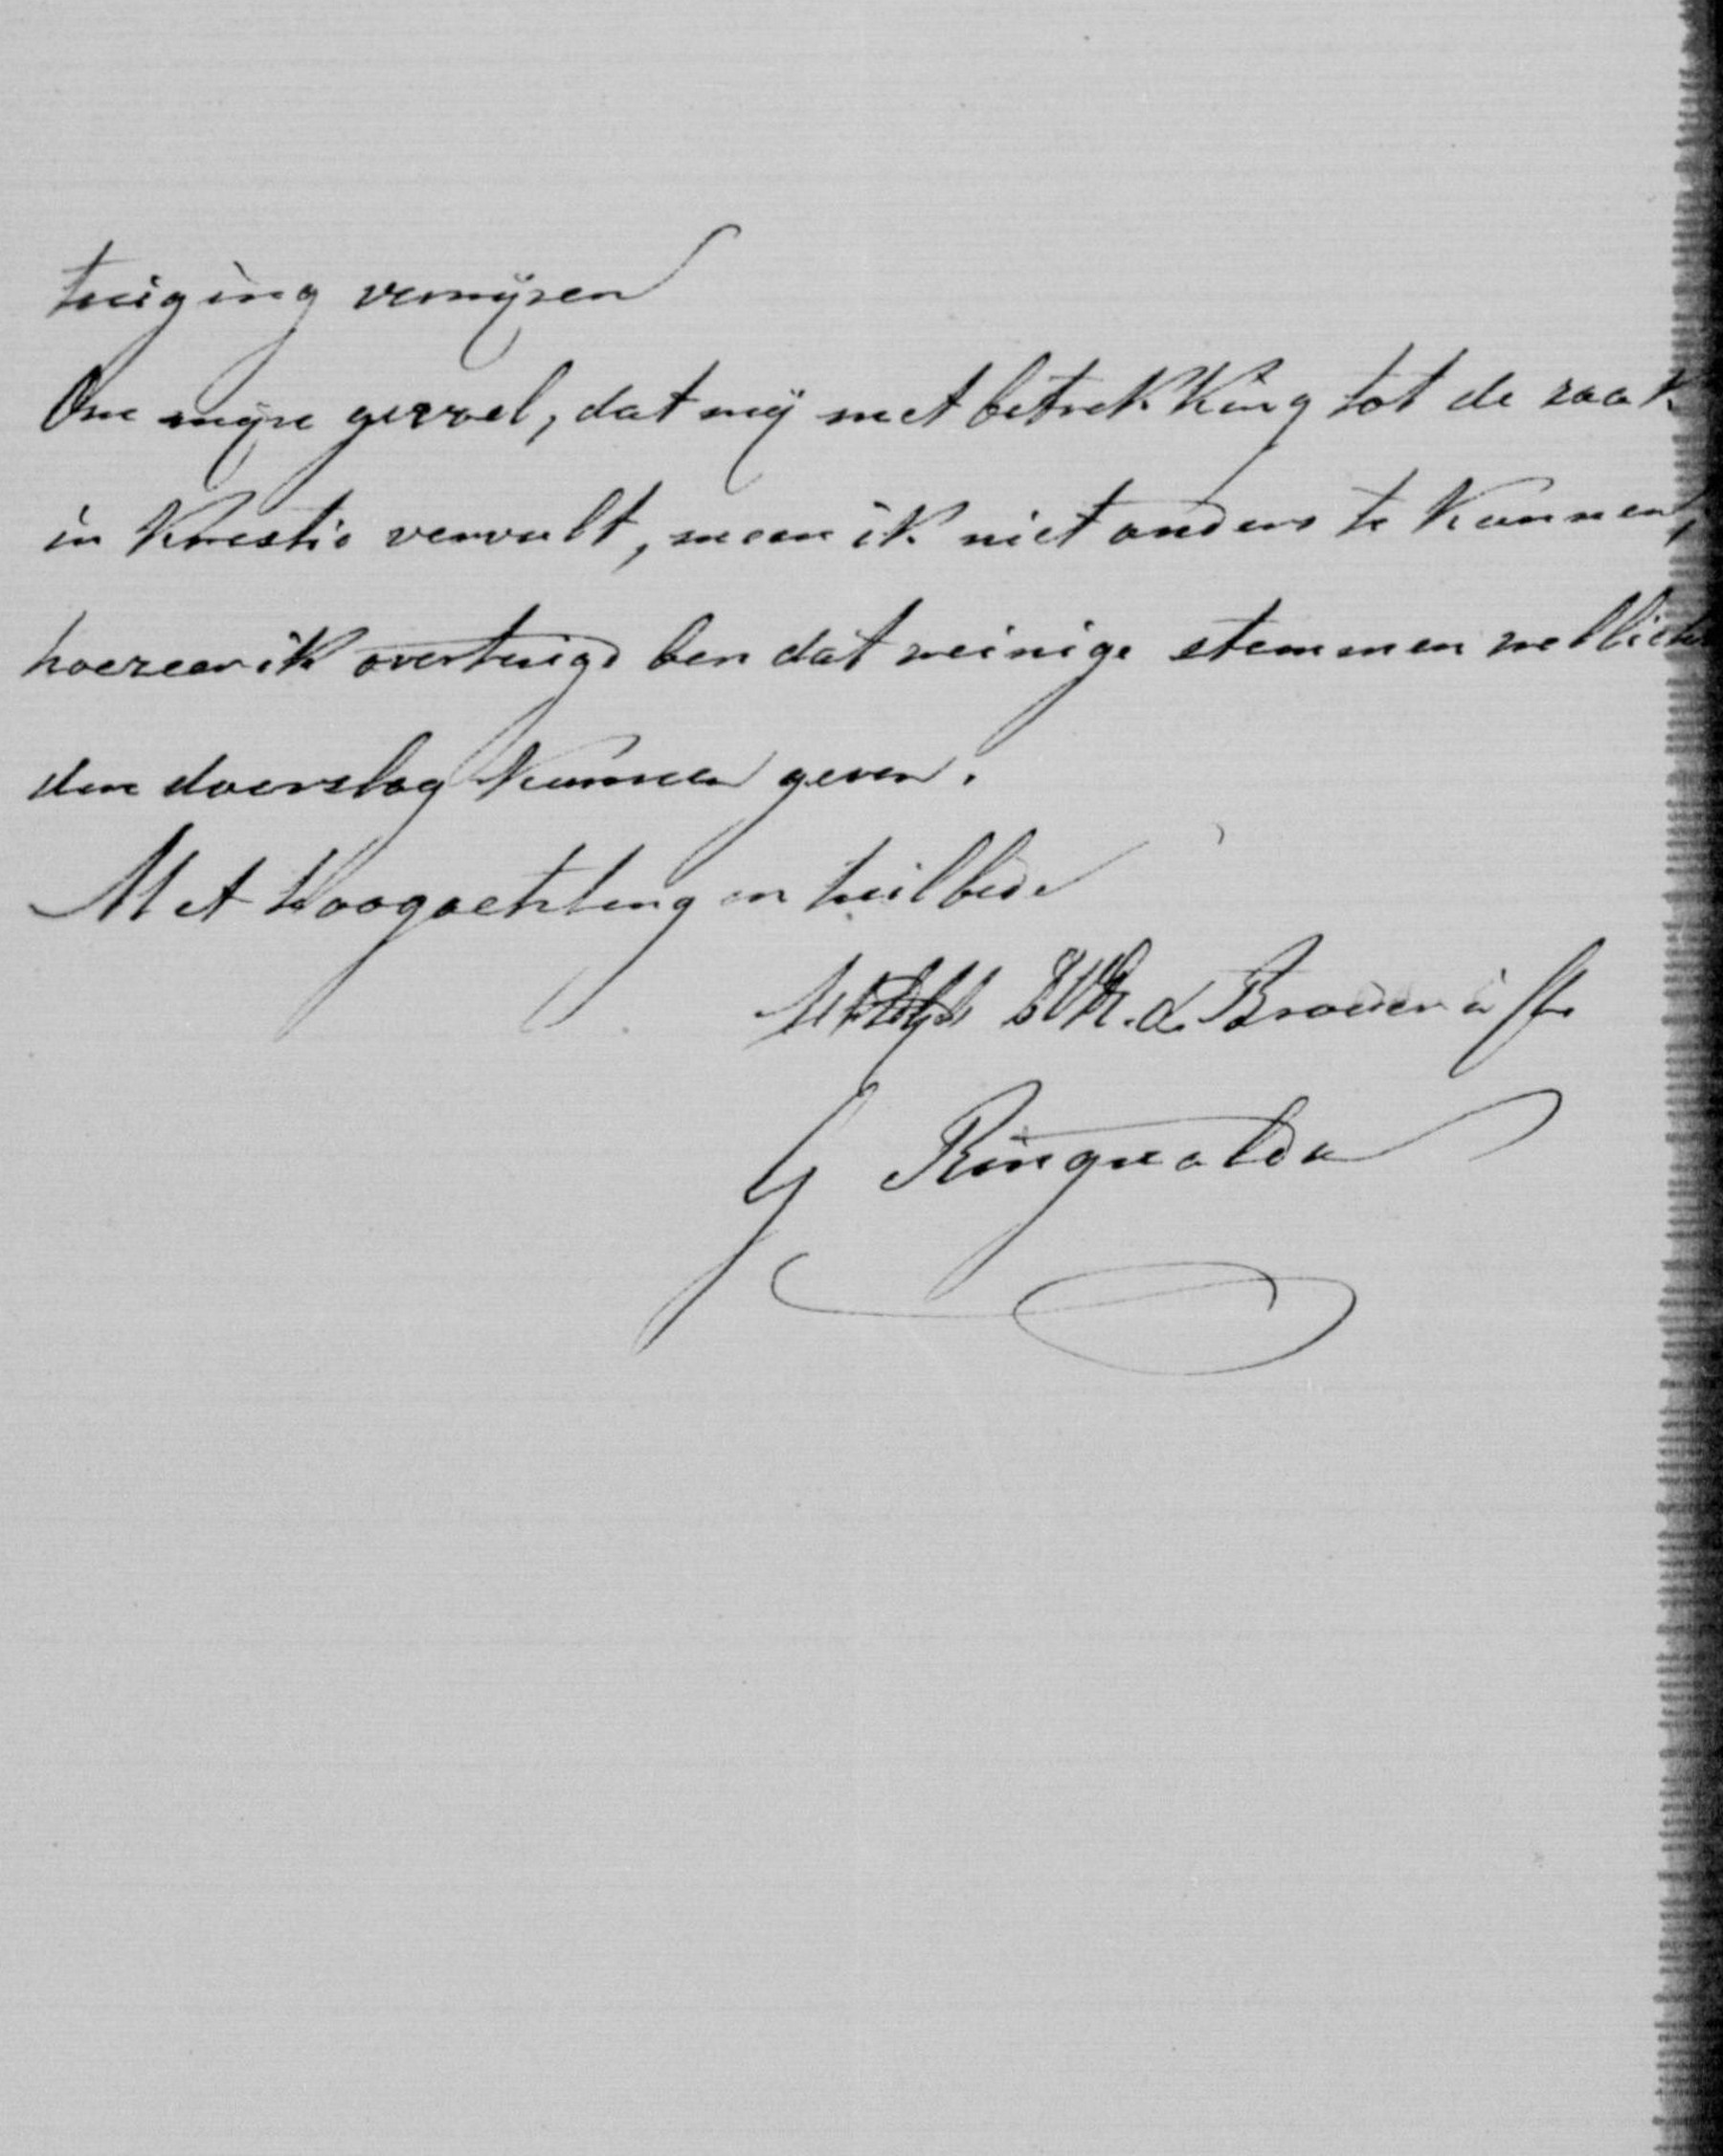 tuiging verwijzen
Om mijne gevoel, dat mij met betrekking tot de zaak
in kwestie vervult, meen ik niet anders te kunnen,
hoezeer ik overtuigd ben dat weinige stemmen wellicht
den doorslag kunnen geven.
Met Hoogachting en heilbede
UwE. d. Broeder in Chr.
G Ringnalda